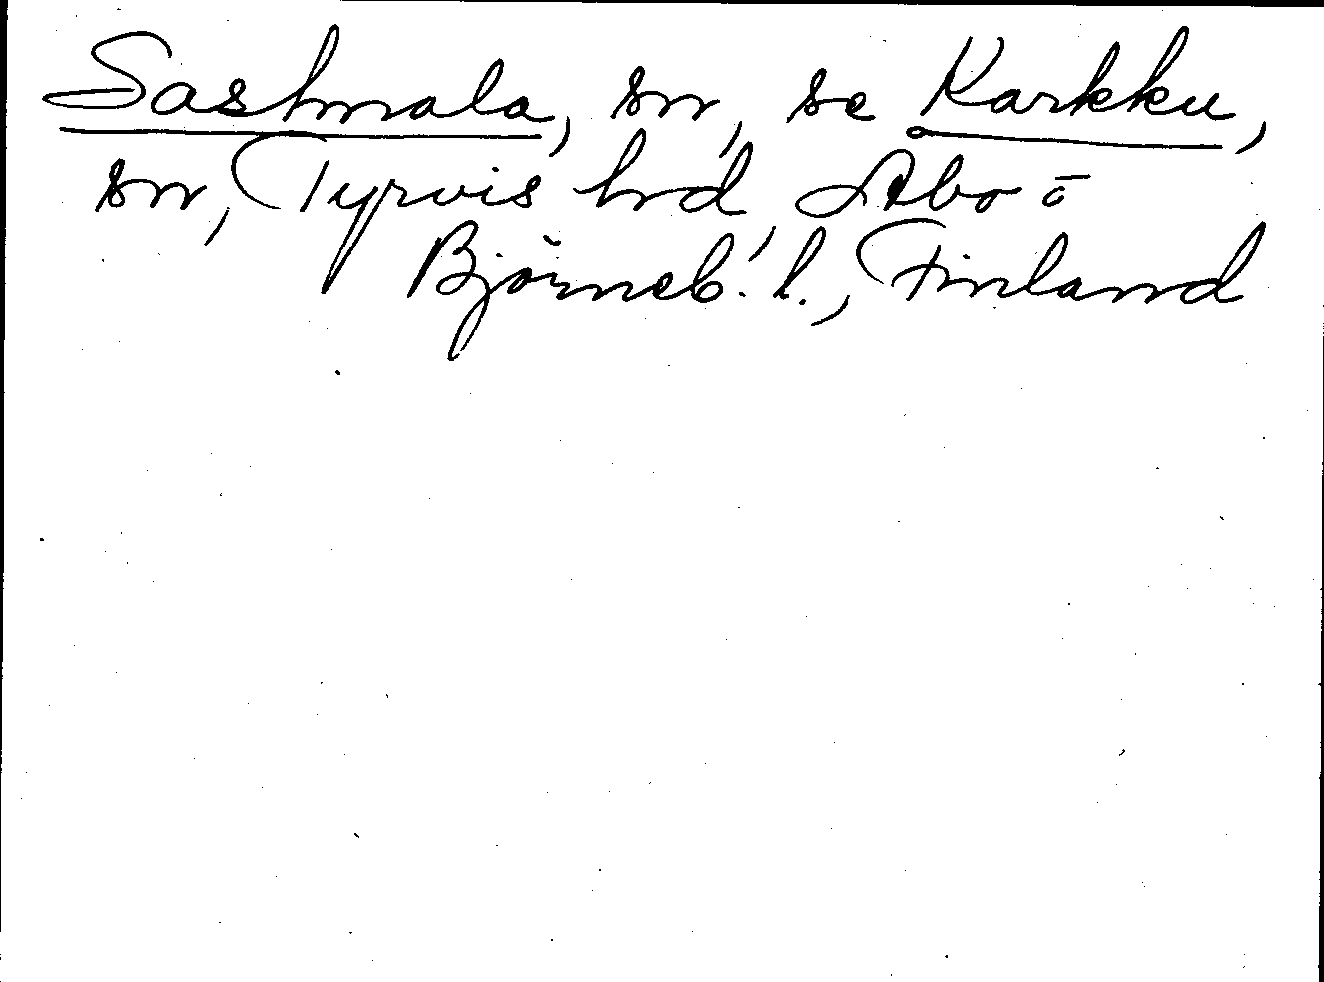 Sashmala, sn, se Karkku,
sn, Tyrvis hrd, Åbo o
Björneb. l., Finland